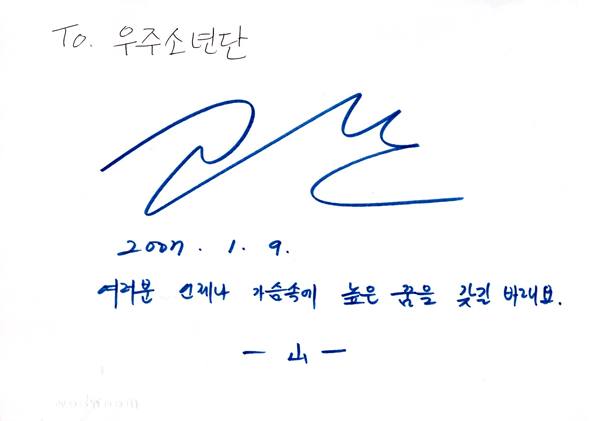 To. 우주소년단
2007. 1. 9.
여러분 언제나 가슴속에 높은 꿈을 갖길 바래요.
- 山 -